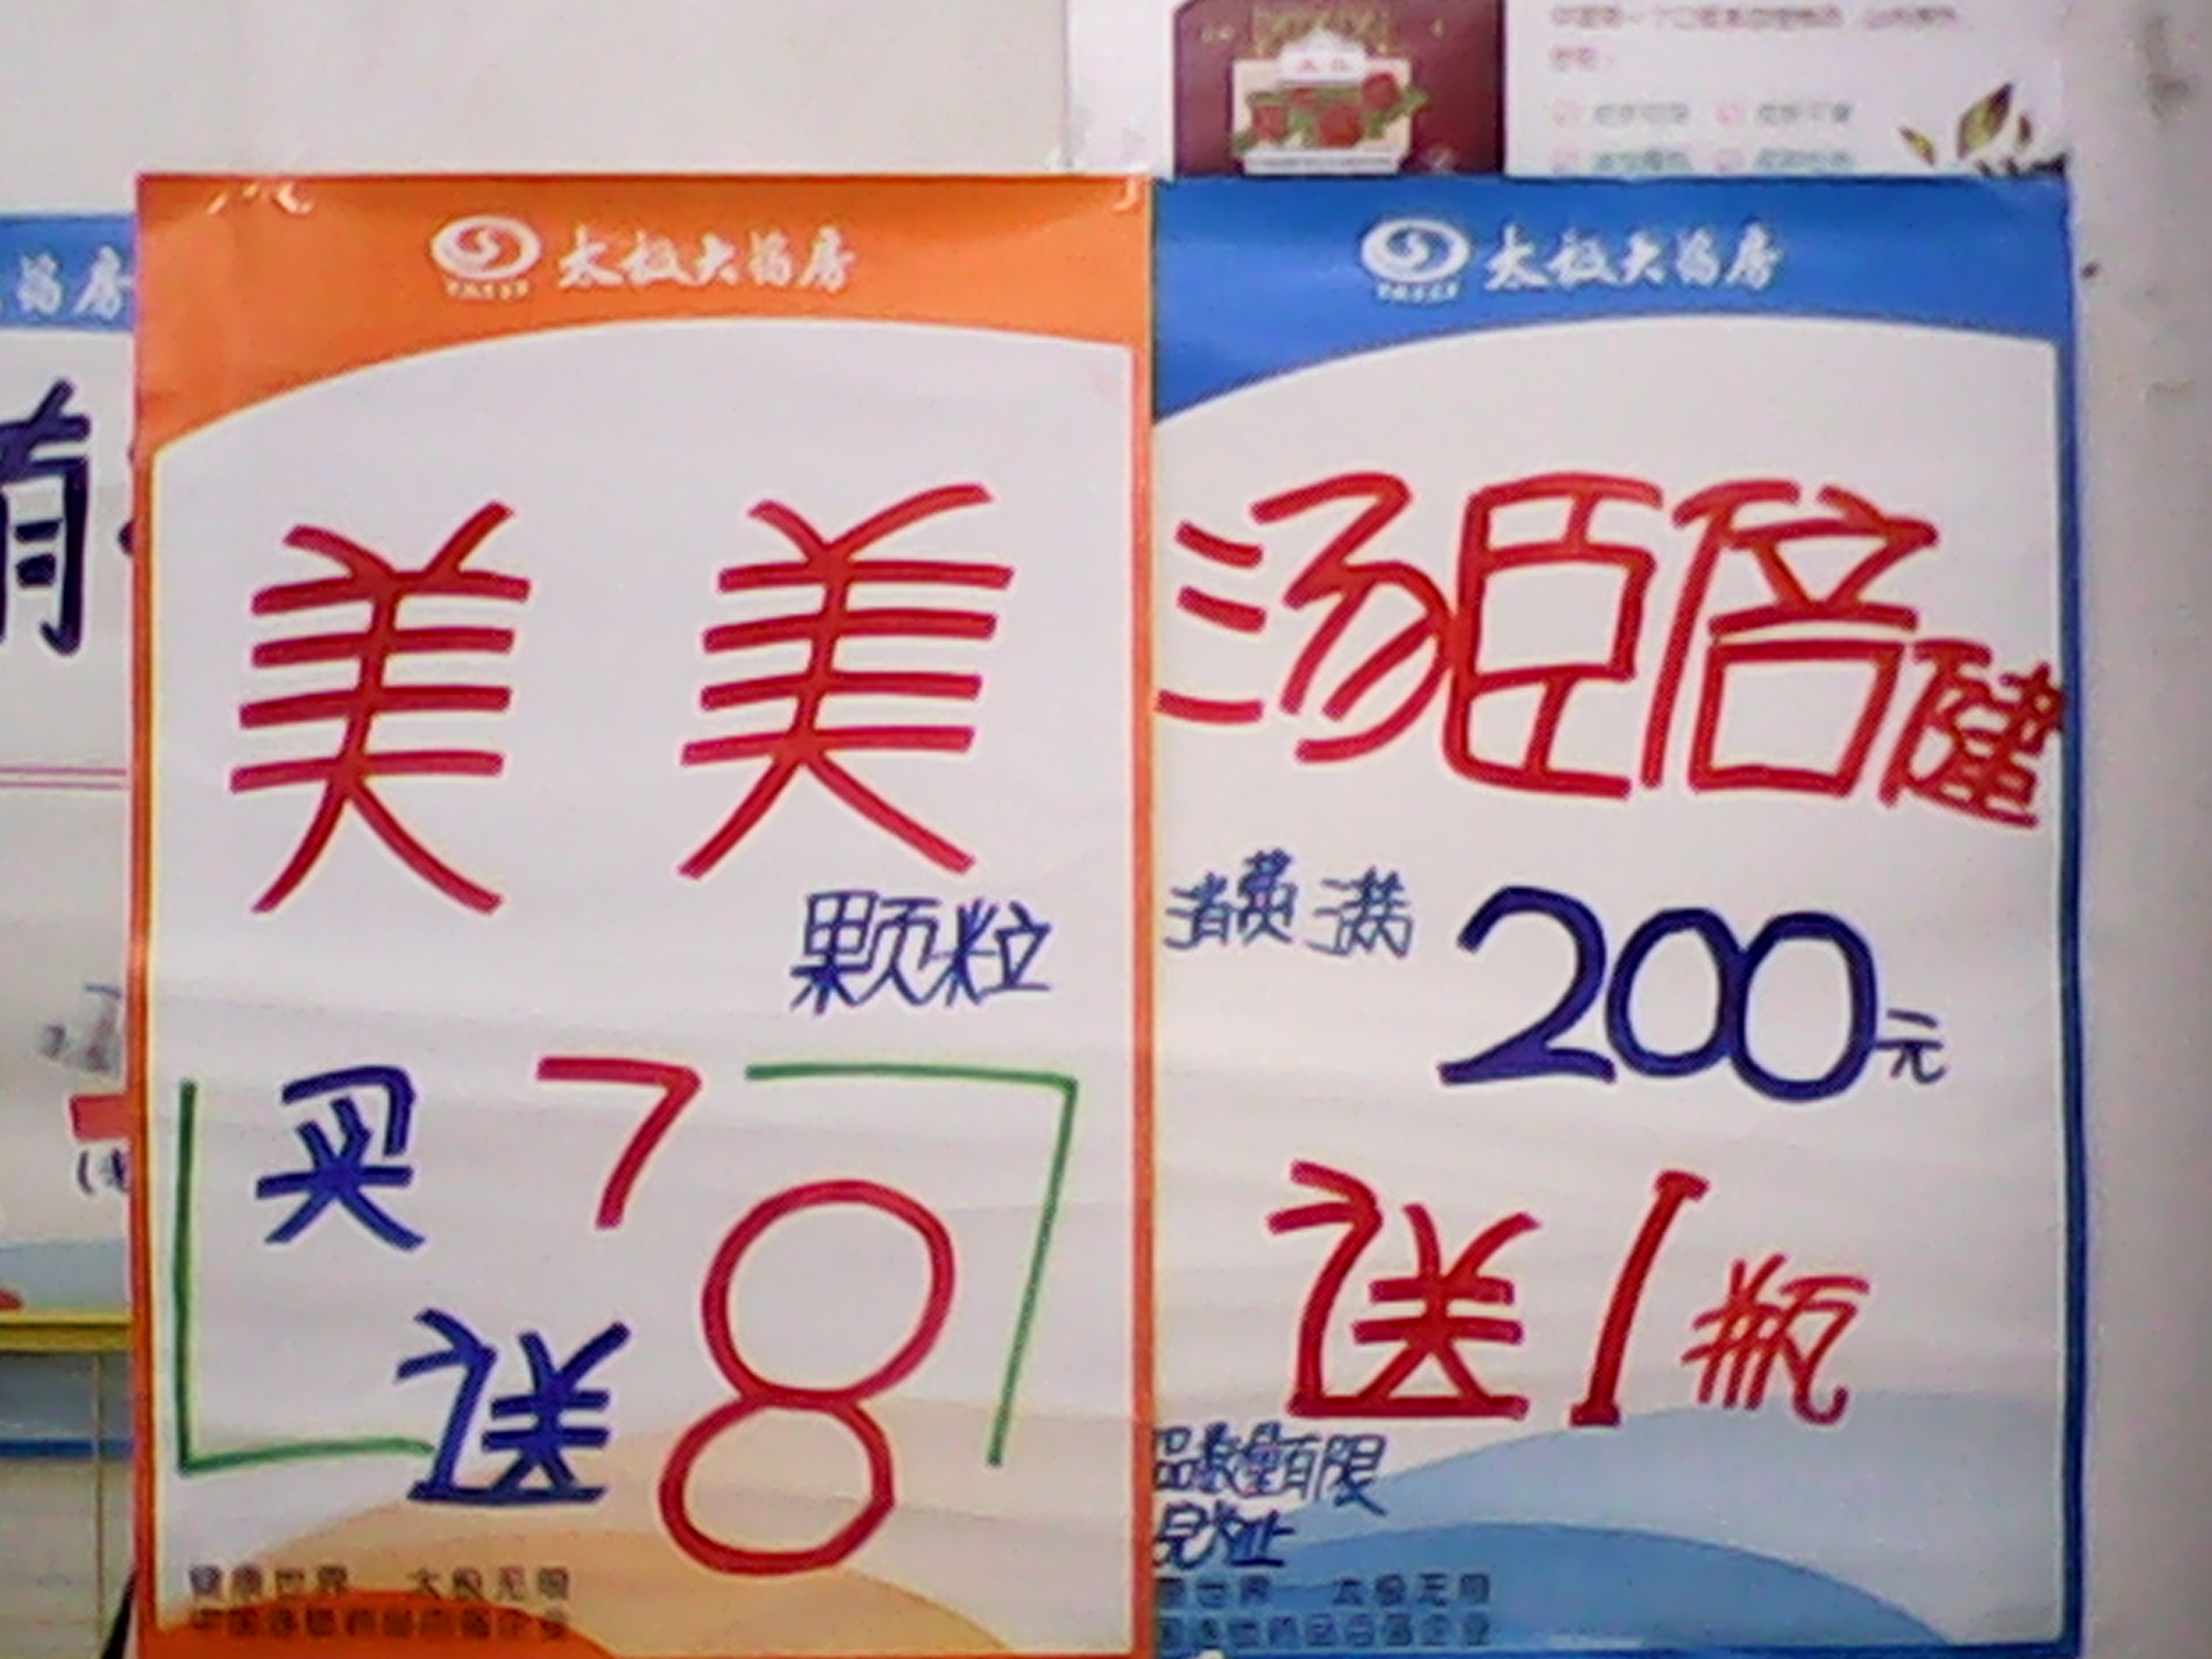 太极大药房
美美
颗粒
买7
送8
健康世界 太极无限
太极大药房
汤臣倍健
消费满200元
送1瓶
品数量有限
世界 太极无限
药房